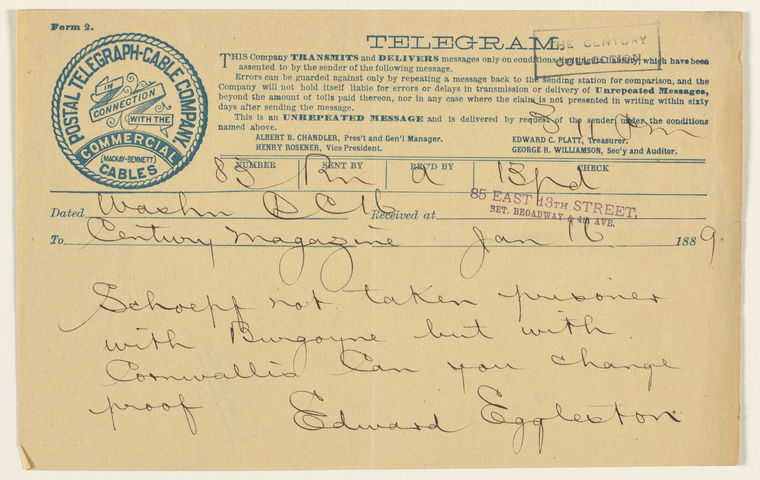 Form 2.
TELEGRAM.
THE CENTURY
COLLECTION
POSTAL TELEGRAPH-CABLE COMPANY
IN
CONNECTION
WITH THE
COMMERCIAL
(MACKAY-BENNETT)
CABLES
THIS Company TRANSMITS and DELIVERS messages only on conditions limiting its liability, which have been
assented to by the sender of the following message.
Errors can be guarded against only by repeating a message back to the sending station for comparison, and the
Company will not hold itself liable for errors or delays in transmission or delivery of Unrepeated Messages,
beyond the amount of tolls paid thereon, nor in any case where the claim is not presented in writing within sixty
days after sending the message.
This is an UNREPEATED MESSAGE and is delivered by request of the sender, under the conditions
named above.
ALBERT B. CHANDLER, Pres't and Gen'l Manager.
HENRY ROSENER, Vice President.
EDWARD C. PLATT, Treasurer.
GEORGE R. WILLIAMSON, Sec'y and Auditor.
NUMBER SENT BY REC'D BY CHECK
83 Rn a 13pd
Dated Washn D C 16 Received at
85 EAST 13TH STREET,
BET. BROADWAY & 4th AVE.
To Century Magazine Jan 16 1889.
Schoepf not taken prisoner
with Burgoyne but with
Cornwallis Can you change
proof Edward Eggleston